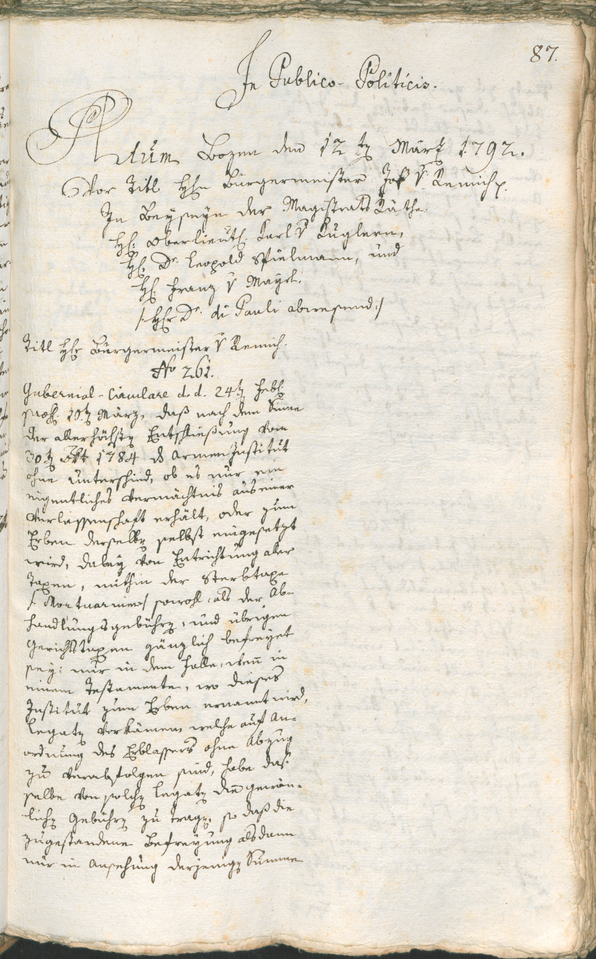 87.
In Publico-Politicis.
Actum Bozen den 12 t März 1792.
Vor Titl Hrn Burgermeister Jos v Remich.
In Beyseyn der Magistrats Räthe
H: Oberlieut Karl v Kuglern,
H: Dr. Leopold Spielmann, und
H: Franz v Mayrl.
/: Hr Dr. di Pauli abwesend :/
Titl Hr Burgermeister v Remich.
No 261.
Gubernial-Circulare d. d. 24t Febr.
pros. 10t März, daß nach dem Sinne
der allerhöchsten Entschließung vom
30t Okt 1784 das Armen Institut
ohne Unterschied, ob es nur ein
eigentliches Vermächtnis aus einer
Verlassenschaft erhält, oder zum
Erben derselben selbst eingesetzt
wird, dabey von Entrichtung aller
Taxen, mithin der Sterbtaxe
/: Mortuarium :/ sowohl als der Ab-
handlungsgebühren, und übrigen
Gerichtstaxen gänzlich befreyet
sey: nur in dem Falle, wenn in
einem Testamente, wo dieses
Institut zum Erben ernannt wird,
Legaten vorkämen, welche auf An-
ordnung des Erblassers ohne Abzug
zu verabfolgen sind, habe das-
selbe von solchen Legaten die gewöhn-
lichen Gebühren zu tragen, so daß die
zugestandene Befreyung alsdann
nur in Ansehung derjenigen Summe